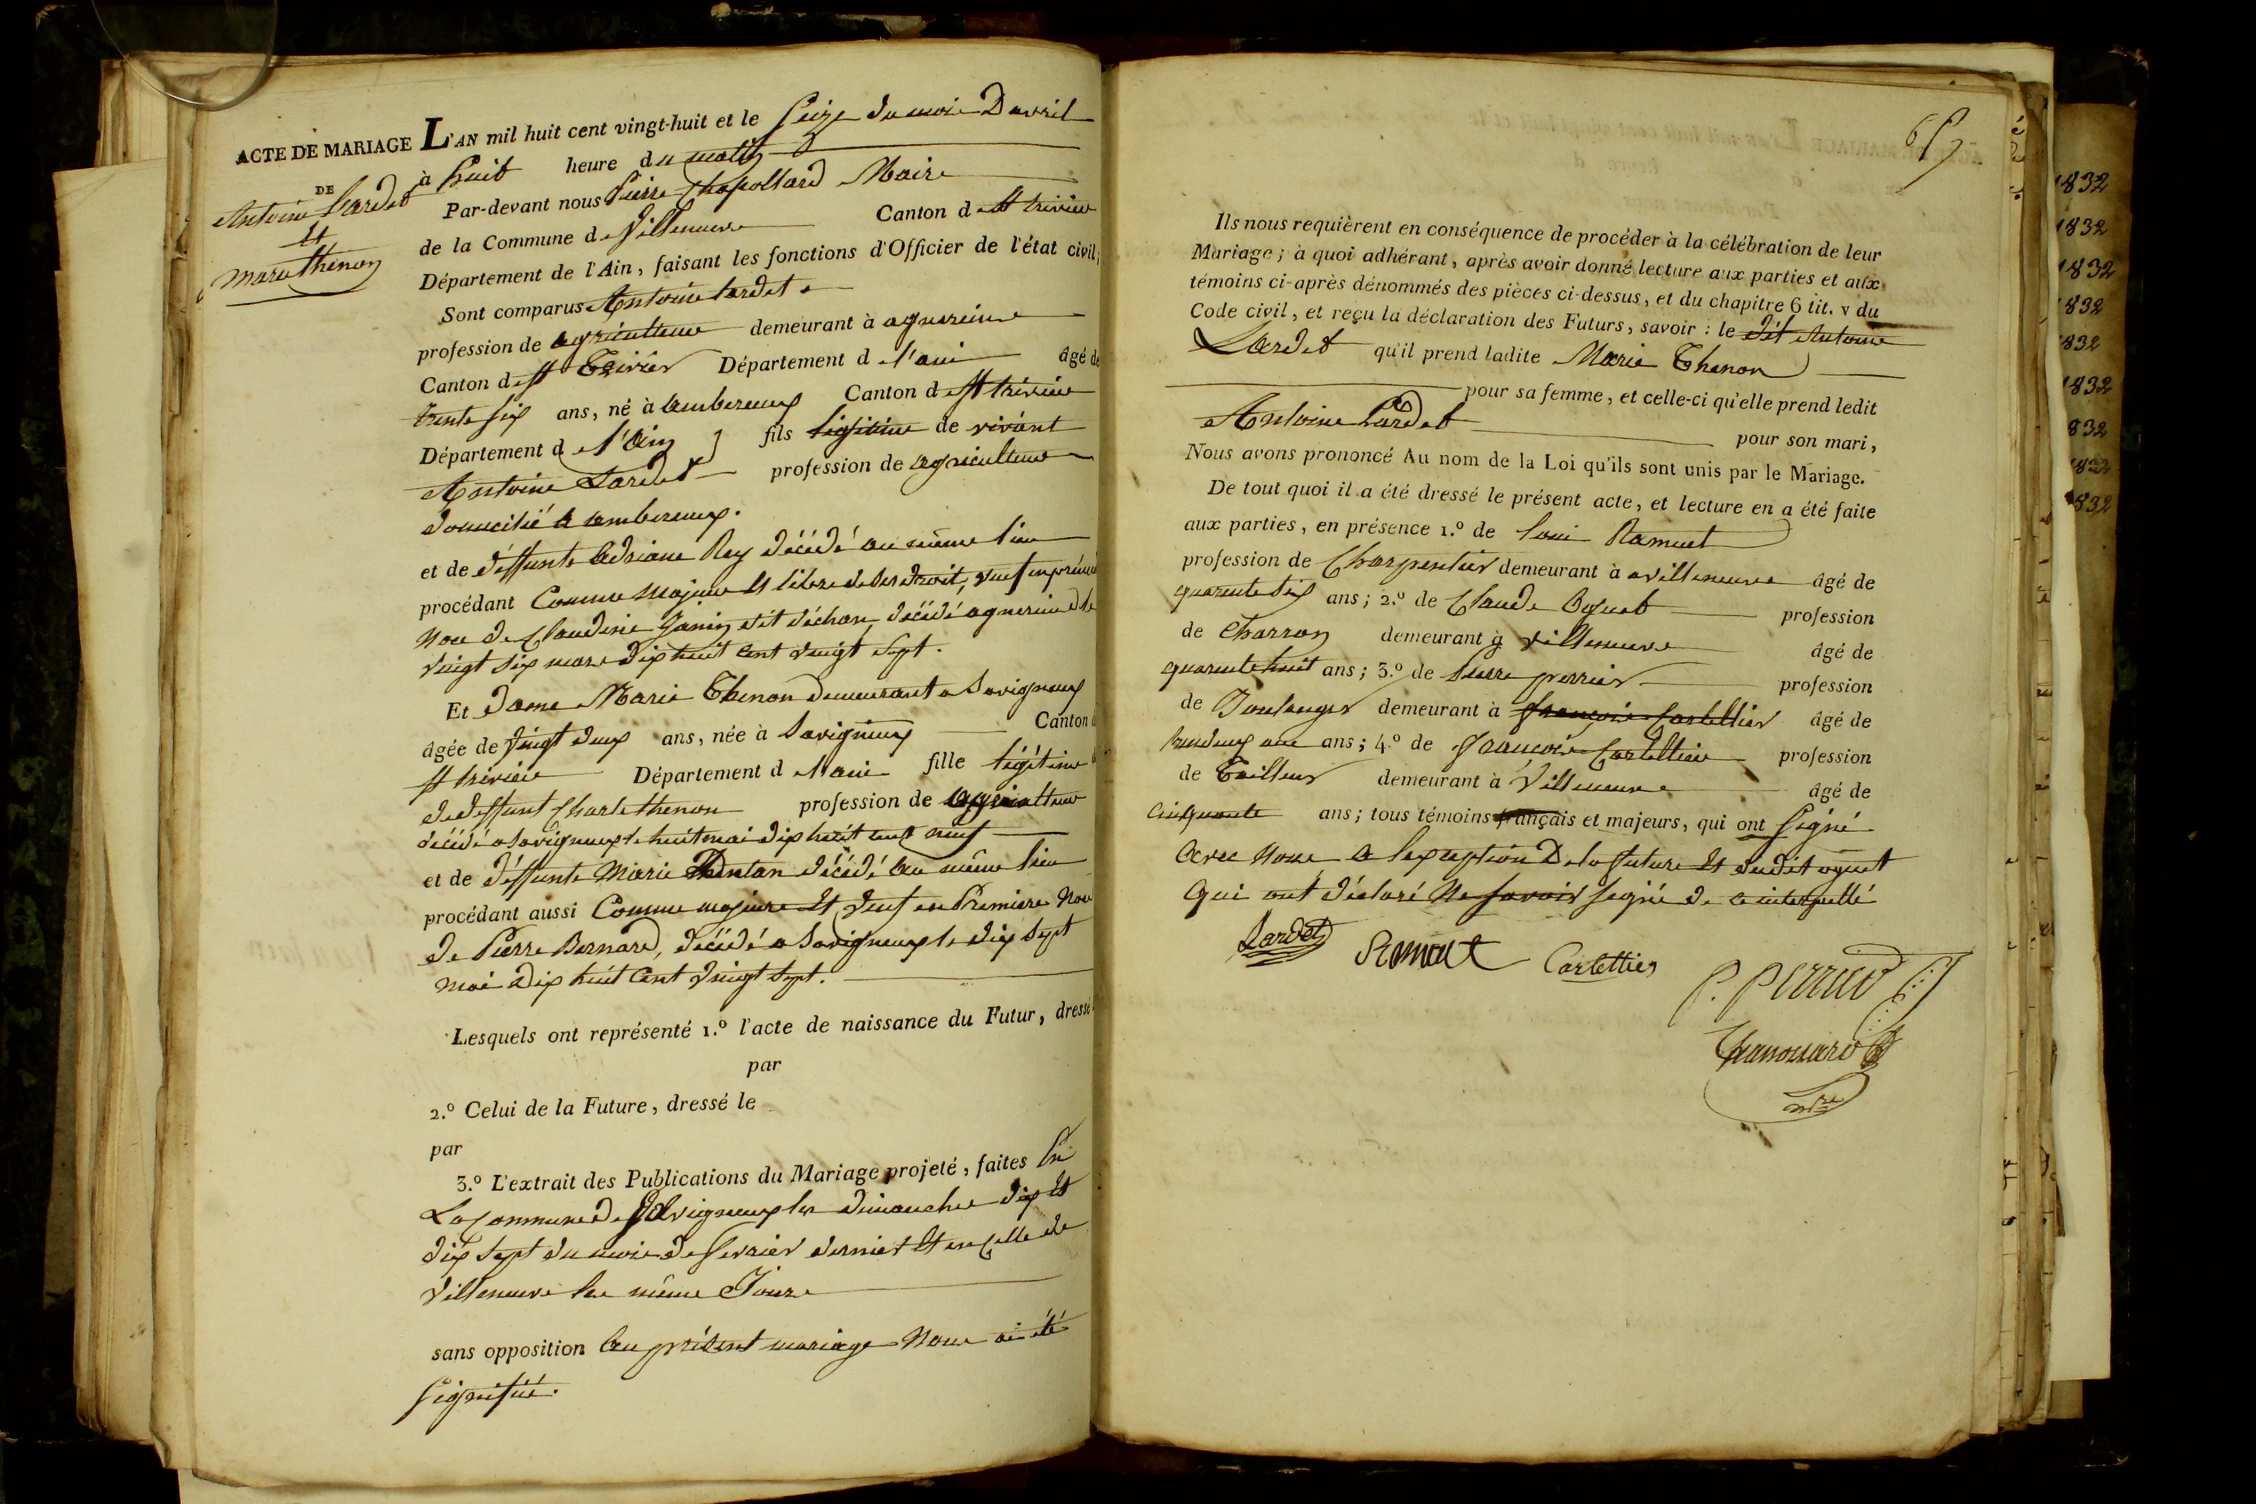 ACTE DE MARIAGE
DE
Antoine Lardet
Et
Marie thenon
L'AN mil huit cent vingt-huit et le Seize du mois Davril
à huit heure du matin
Par-devant nous Pierre Chapollard Maire
de la Commune de Villeneuve Canton de St trivier
Département de l'Ain, faisant les fonctions d'Officier de l'état civil,
Sont comparus Antoine Lardet
profession de agriculteur demeurant à agnereins
Canton de St Trivier Département de l'ain âgé de
trente six ans, né à amberieux Canton de St trivier
Département de l'Ain fils légitime de vivant
Antoine Lardet profession de agriculteur
domicilié a amberieux.
et de déffunte Adriane Rey décédé au même lieu
procédant Comme majeur et libre de ses droit, veuf en première
Noce de Claudine Janin décédé agnereins le
vingt six mars dix huit cent vingt sept.
Et Dame Marie Thenon demeurant a Savigneux
âgée de vingt deux ans, née à Savigneux Canton de
St trivier Département de l'ain fille légitime
de deffunt Charle thenon profession de agriculteur
décédé a Savigneux le huit mai dix huit cent neuf
et de déffunte Marie décédé au même lieu
procédant aussi Comme majeure Et veuf en Premiere Noce
de Pierre Bernard, décédé a Savigneux le dix sept
mai dix huit cent vingt sept.
Lesquels ont représenté 1.º l'acte de naissance du Futur, dressé
par
2.º Celui de la Future, dressé le
par
3.º L'extrait des Publications du Mariage projeté, faites En
La Commune de Savigneux les dimanches dix Et
dix sept du mois de fevrier dernier Et en celle de
villeneuve les même Jours
sans opposition au présent mariage Nous ai été
signifiée.
Ils nous requièrent en conséquence de procéder à la célébration de leur
Mariage; à quoi adhérant, après avoir donné lecture aux parties et aux
témoins ci-après dénommés des pièces ci-dessus, et du chapitre 6 tit. v du
Code civil, et reçu la déclaration des Futurs, savoir : le dit Antoine
Lardet qu'il prend ladite Marie Thenon
pour sa femme, et celle-ci qu'elle prend ledit
Antoine Lardet pour son mari,
Nous avons prononcé Au nom de la Loi qu'ils sont unis par le Mariage.
De tout quoi il a été dressé le présent acte, et lecture en a été faite
aux parties, en présence 1.º de Louis Ramuet
profession de Charpentier demeurant à a villeneuve âgé de
quarente six ans; 2.º de Claude Oyuet profession
de Charron demeurant à villeneuve âgé de
quarente huit ans; 3.º de Pierre perrier profession
de Boulanger demeurant à françois Cortellier âgé de
trendeux ans ans; 4.º de françois Cartellier profession
de Tailleur demeurant à Villeneuve âgé de
Cinquante ans; tous témoins français et majeurs, qui ont signé
avec Nous a l'exception De la future Et dudit oyuet
qui ont déclaré Ne savoir signé de ce interpellé
Lardet
Ramuet
Cartellier
P. perrier
Chapollard
mre
1832
1832
1832
1832
1832
1832
832
1832
1832